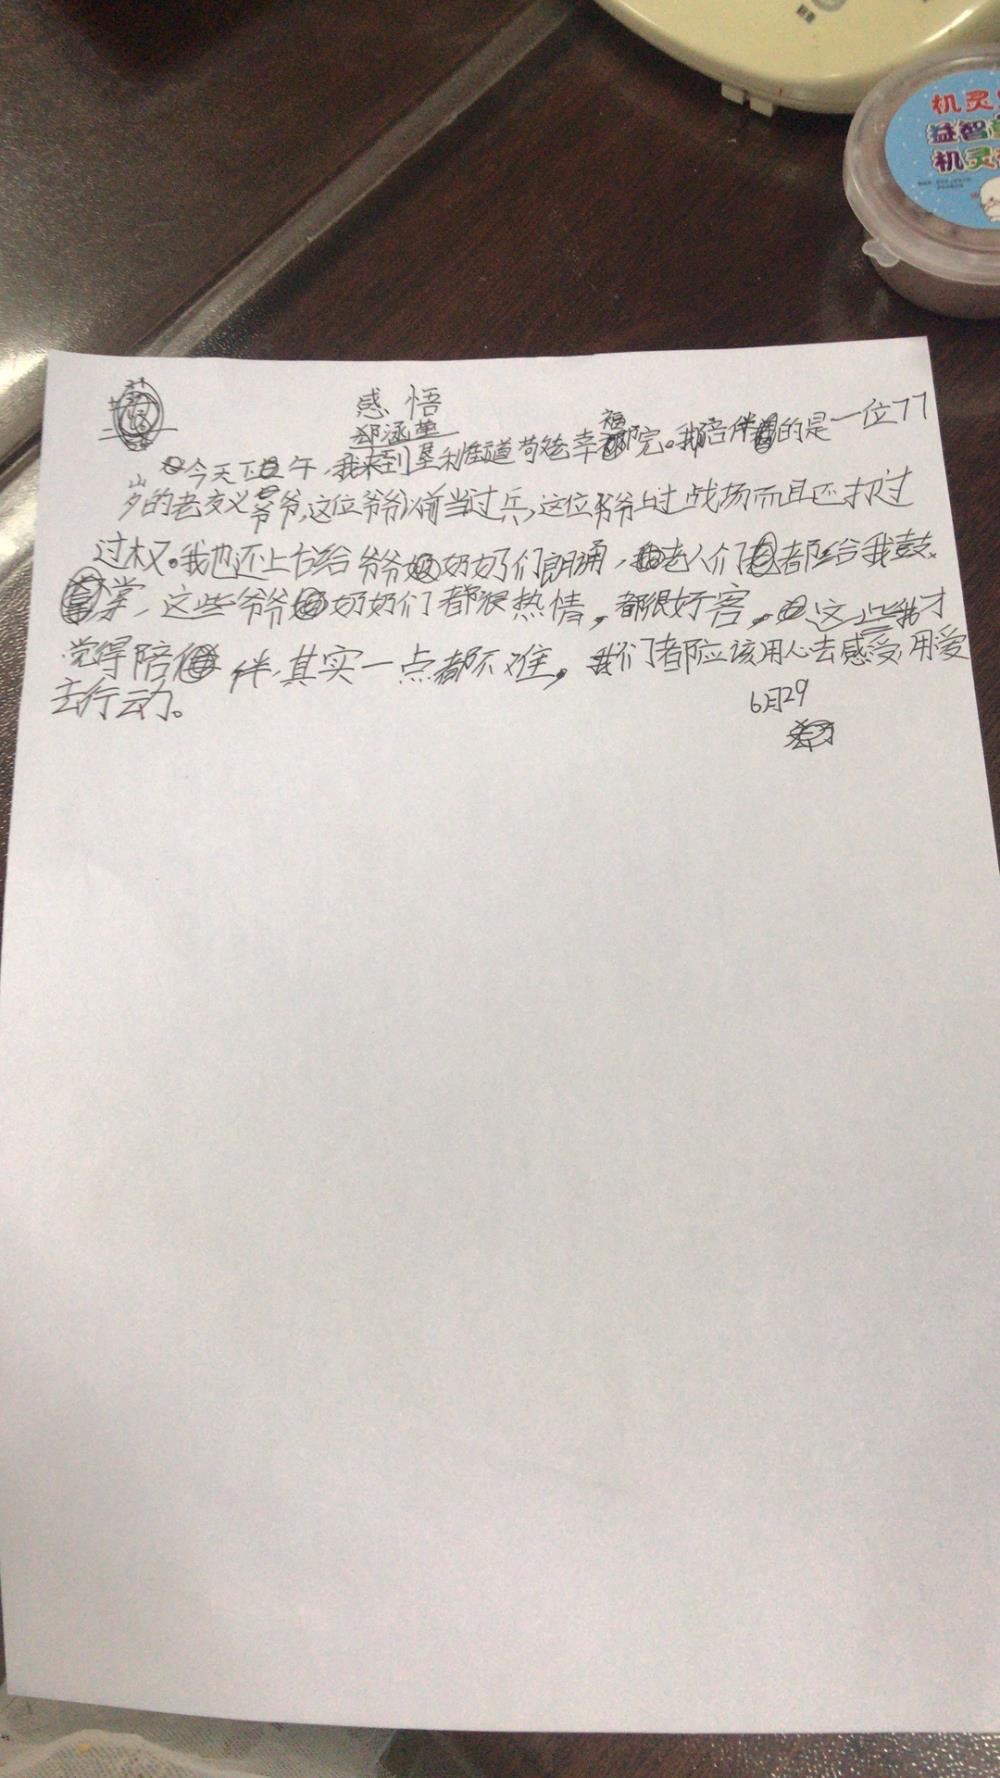 机灵
益智
机灵
感悟
邓涵
今天下午,我来到垦利街道苟老幸福院。我陪伴的是一位77
岁的老爷爷,这位爷爷以前当过兵,这位爷爷上过战场而且还扛过
过权。我也还上台给爷爷奶奶们朗诵,老人们都给我鼓
掌,这些爷爷奶奶们都很热情,都很好客。这些我才
觉得陪伴,其实一点都不难,我们都应该用心去感受,用爱
去行动。
6月29